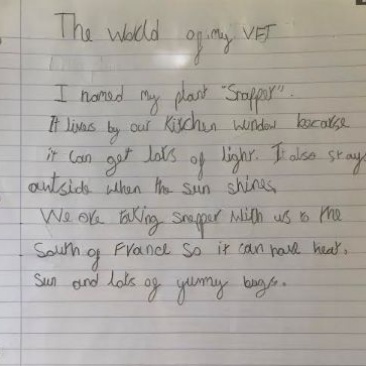 The World of my VFT
I named my plant "Snapper".
It lives by our Kitchen window because
it can get lots of light. It also stays
outside when the sun shines.
We are taking snapper with us to the
South of France So it can have heat,
Sun and lots of yummy bugs.